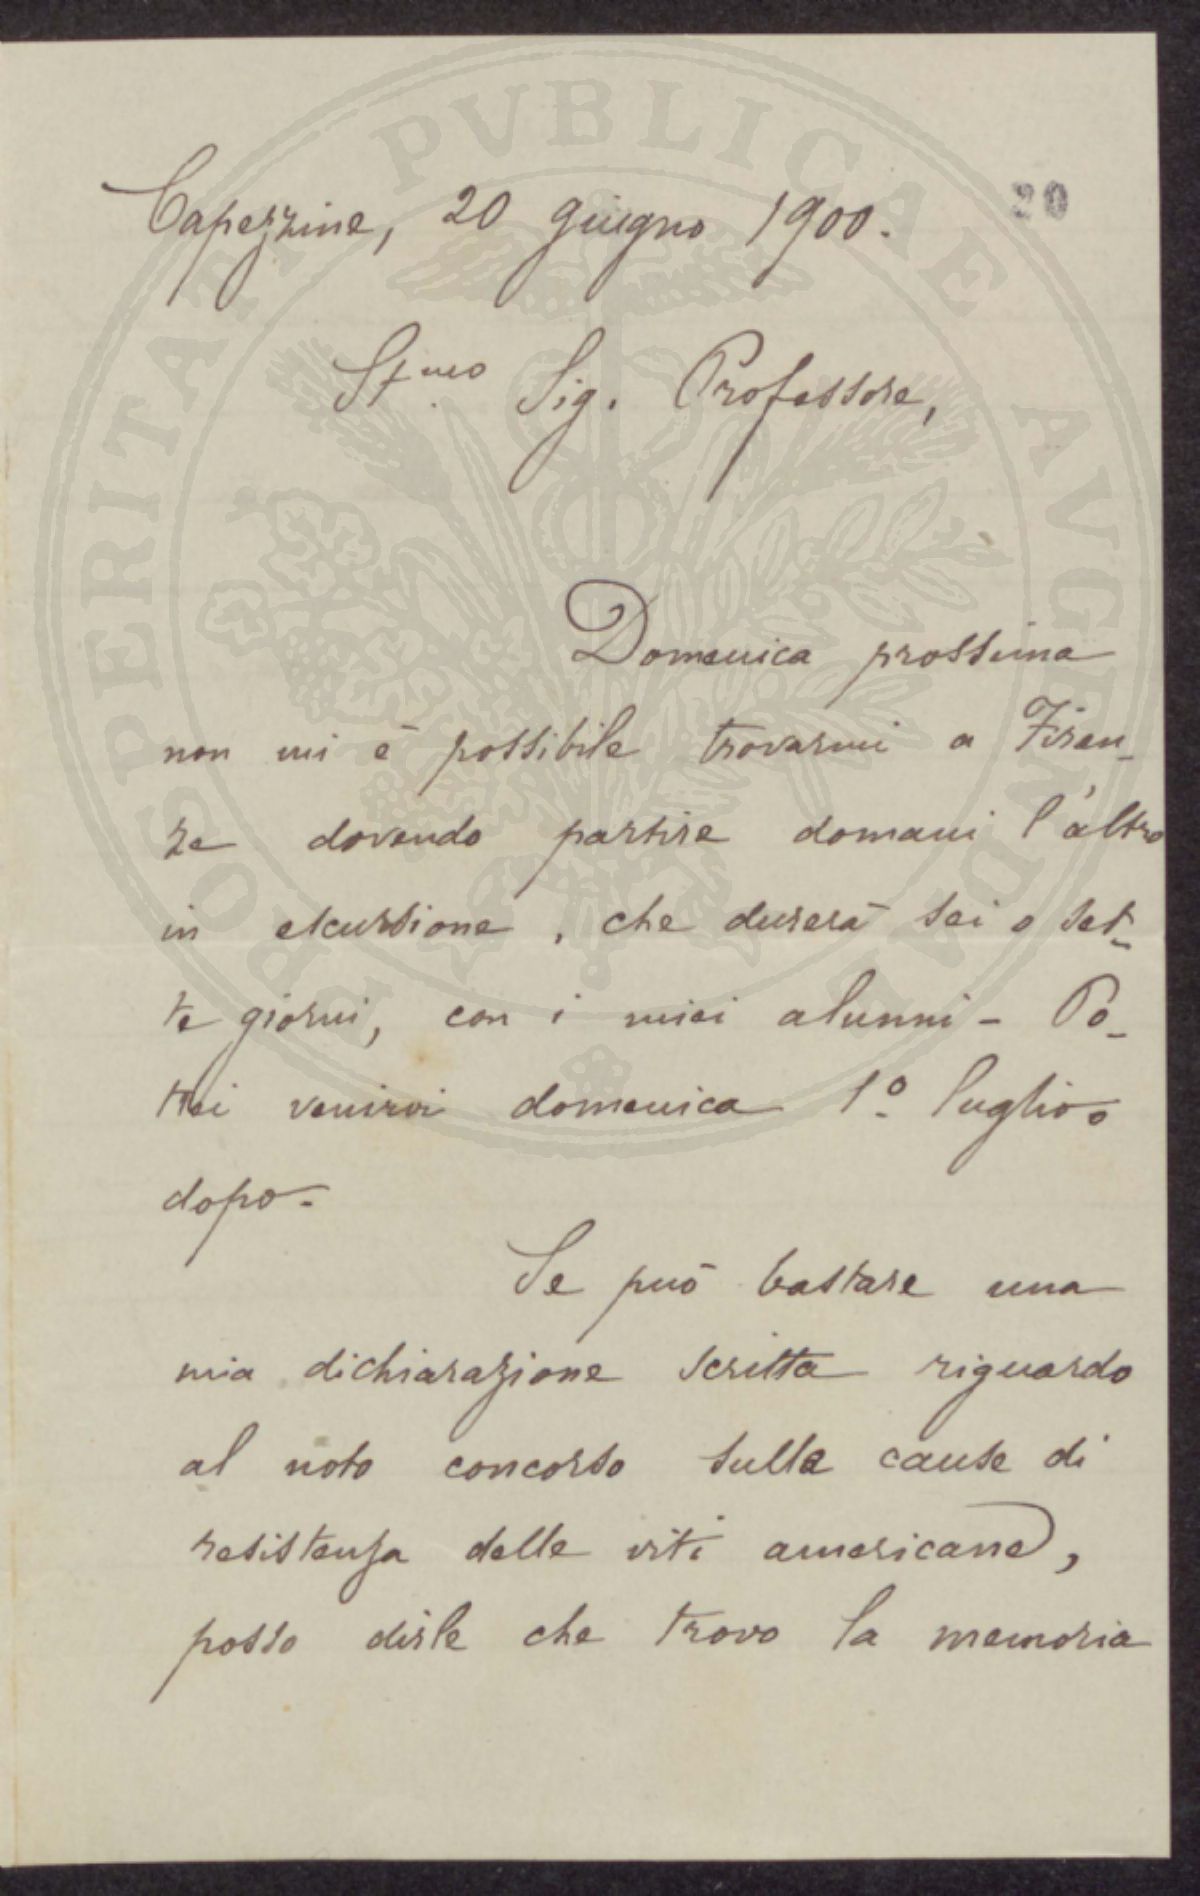 PROSPERITATI PVBLICAE AVGENDAE
20
Capezzine, 20 giugno 1900.
Sig. Professore,
Domenica prossima
non mi è possibile trovarmi a Firen-
ze dovendo partire domani l'altro
in escursione, che durerà sei o set-
te giorni, con i miei alunni - Po-
trei venirvi domenica 1º luglio o
dopo.
Se può bastare una
mia dichiarazione scritta riguardo
al noto concorso sulle cause di
resistenza delle viti americane,
posso dirle che trovo la memoria